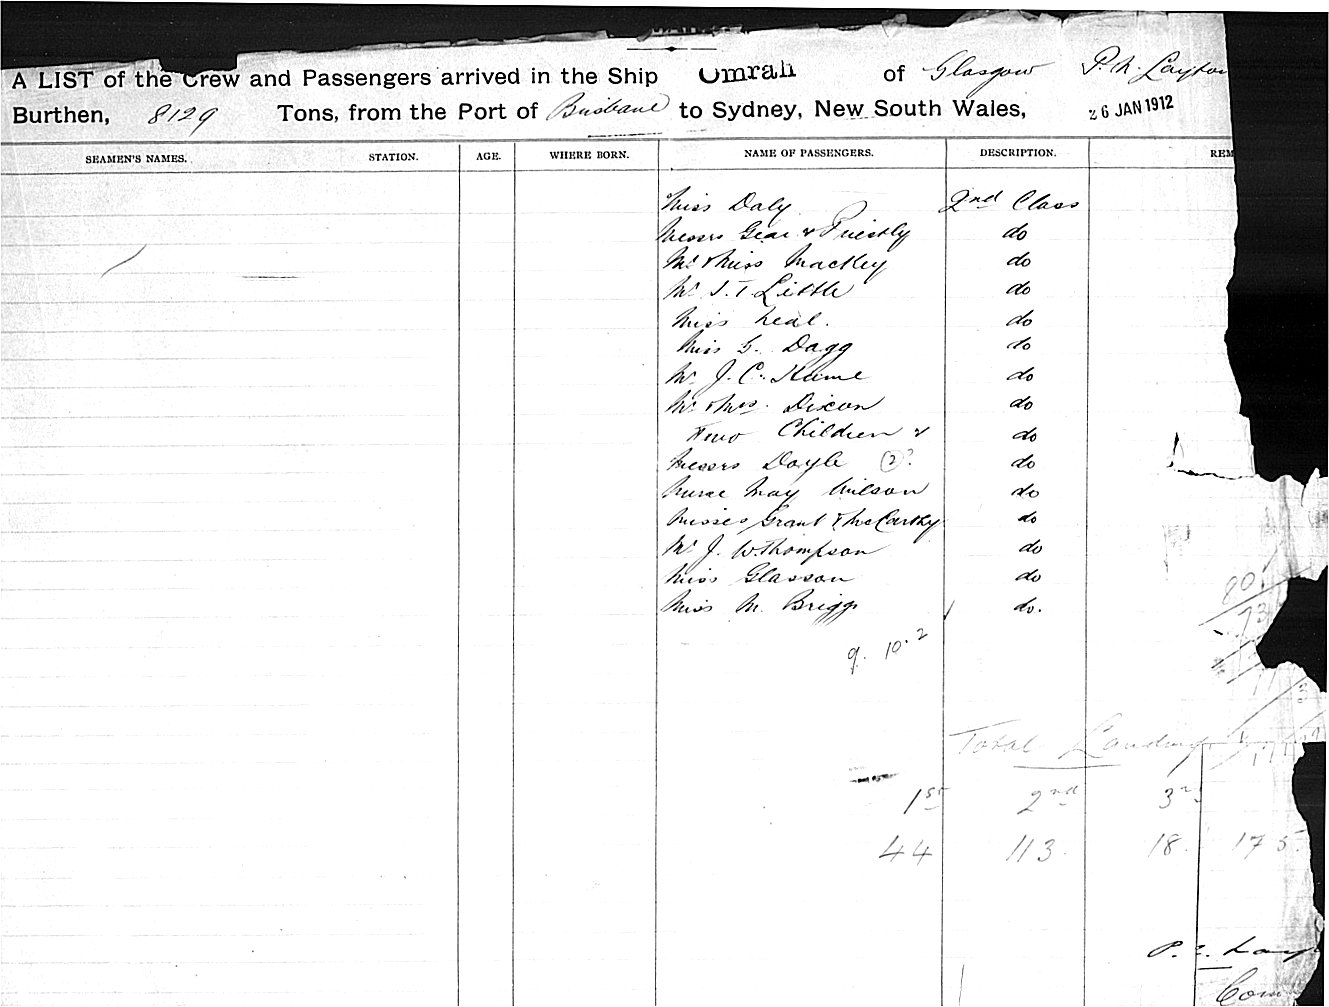 A LIST of the Crew and Passengers arrived in the Ship Omrah of Glasgow P. N. Layton
Burthen, 8129 Tons, from the Port of Brisbane to Sydney, New South Wales, 26 JAN 1912
SEAMEN'S NAMES. STATION. AGE. WHERE BORN. NAME OF PASSENGERS. DESCRIPTION. REM
Miss Daly 2nd Class
Messrs Gear & Priestly do
Mr & Miss Mackey do
Mr J. T. Little do
Miss Neal. do
Miss G. Dagg do
Mr J. C. Hume do
Mr & Mrs. Dixon do
Two Children & do
Messrs Doyle (2)? do
Nurse May Wilson do
Misses Grant & McCarthy do
Mr J. W. Thompson do
Miss Glasson do
Miss M. Briggs do.
9. 10. 2
80
73
Total Landing
1st 2nd 3rd
44 113. 18. 175.
P. N. Lay
Com